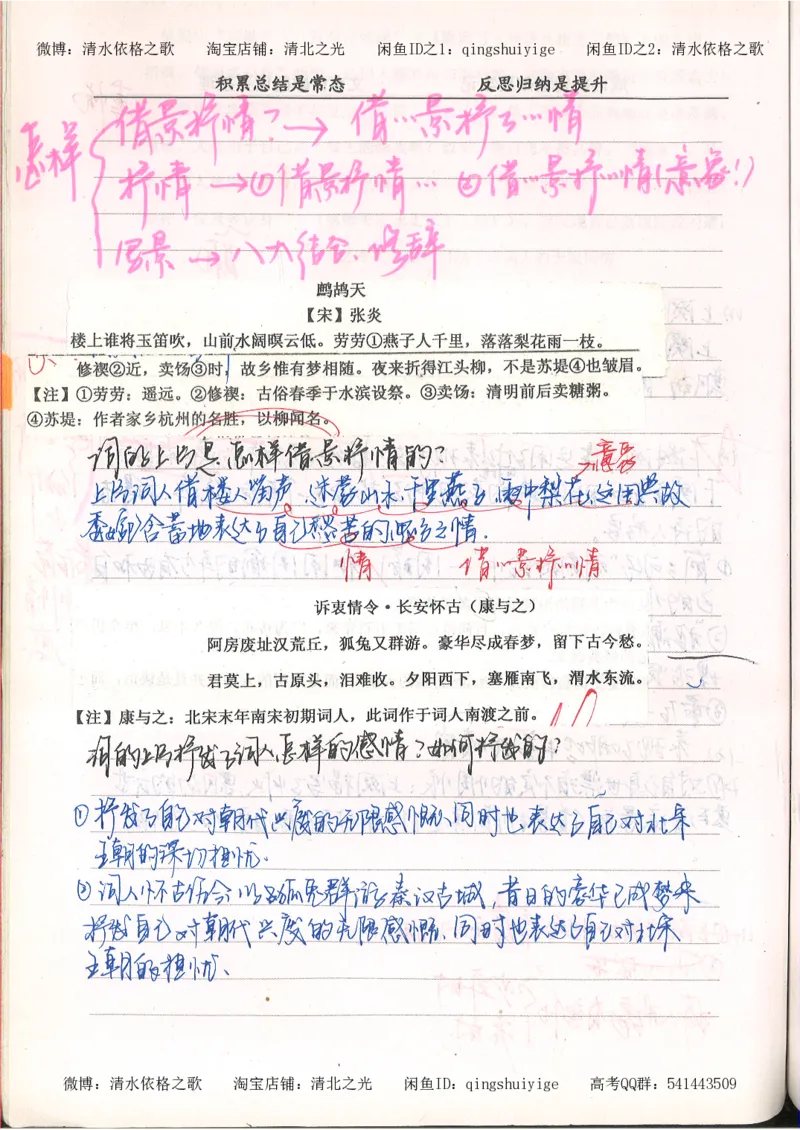 微博：清水依格之歌 淘宝店铺：清北之光 闲鱼ID之1：qingshuiyige 闲鱼ID之2：清水依格之歌
积累总结是常态 反思归纳是提升
怎样
借景抒情？→ 借…景抒了…情
抒情 →①借景抒情… ②借…景抒…情（意象！）
写景 → 八大结合、修辞
鹧鸪天
【宋】张炎
楼上谁将玉笛吹，山前水阔暝云低。劳劳①燕子人千里，落落梨花雨一枝。
修禊②近，卖饧③时，故乡惟有梦相随。夜来折得江头柳，不是苏堤④也皱眉。
【注】①劳劳：遥远。②修禊：古俗春季于水滨设祭。③卖饧：清明前后卖糖粥。
④苏堤：作者家乡杭州的名胜，以柳闻名。
词的上片是怎样借景抒情的？
意象
上片词人借楼人笛声、山水、千里燕子、雨中梨花，
含蓄地表达了自己愁苦的思乡之情.
情 借…景抒…情
诉衷情令·长安怀古（康与之）
阿房废址汉荒丘，狐兔又群游。豪华尽成春梦，留下古今愁。
君莫上，古原头，泪难收。夕阳西下，塞雁南飞，渭水东流。
【注】康与之：北宋末年南宋初期词人，此词作于词人南渡之前。
词的上片抒发了词人怎样的感情？如何抒发的？
①抒发了自己对朝代兴废的无限感慨，同时也表达了自己对北宋
王朝的深切担忧.
②词人怀古伤今，以狐兔群游秦汉古城，昔日的豪华已成梦来
抒发自己对朝代兴废的无限感慨，同时也表达了自己对北宋
王朝的担忧、
微博：清水依格之歌 淘宝店铺：清北之光 闲鱼ID：qingshuiyige 高考QQ群：541443509